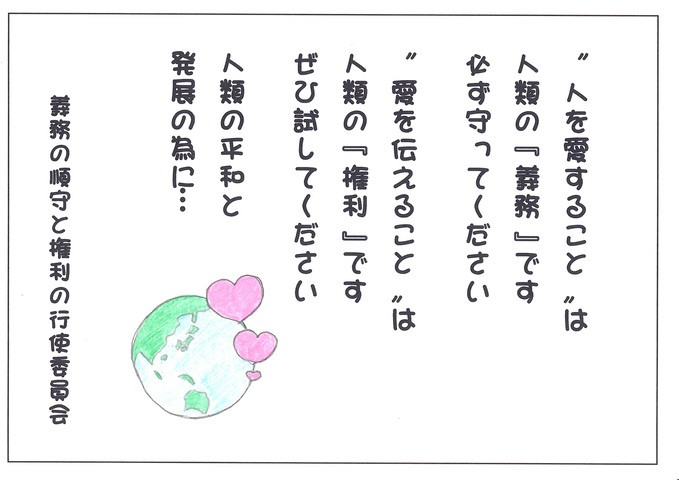 〝人を愛すること〟は
人類の『義務』です
必ず守ってください
〝愛を伝えること〟は
人類の『権利』です
ぜひ試してください
人類の平和と
発展の為に…
義務の順守と権利の行使委員会